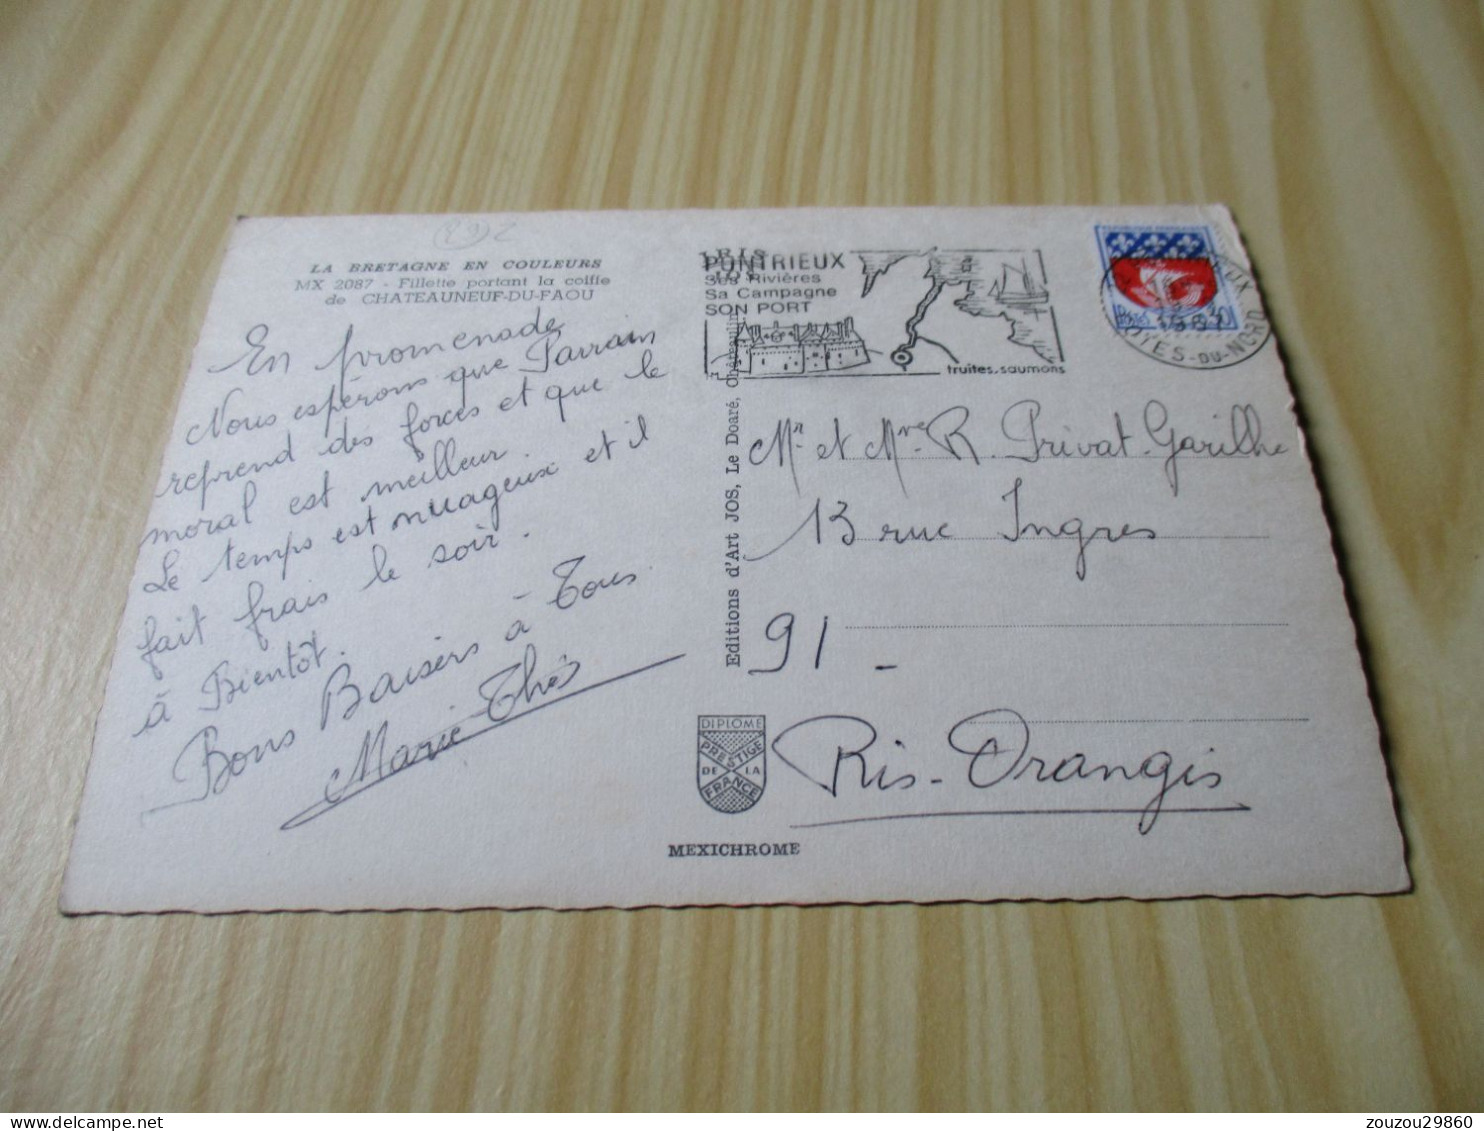 LA BRETAGNE EN COULEURS
MX 2087 - Fillette portant la coiffe
de CHATEAUNEUF-DU-FAOU
En promenade
Nous espérons que Parrain
reprend des forces et que le
moral est meilleur.
Le temps est nuageux et il
fait frais le soir.
à Bientôt.
Bons Baisers à Tous
Marie Thés
Editions d'Art JOS, Le Doaré, Châteaulin
PONTRIEUX
Ses Rivières
Sa Campagne
SON PORT
truites, saumons
COTES-DU-NORD
Mr et Mme R. Privat-Garilhe
13 rue Ingres
91 -
Ris-Orangis
DIPLOME
PRESTIGE
DE LA
FRANCE
MEXICHROME
zouzou29860